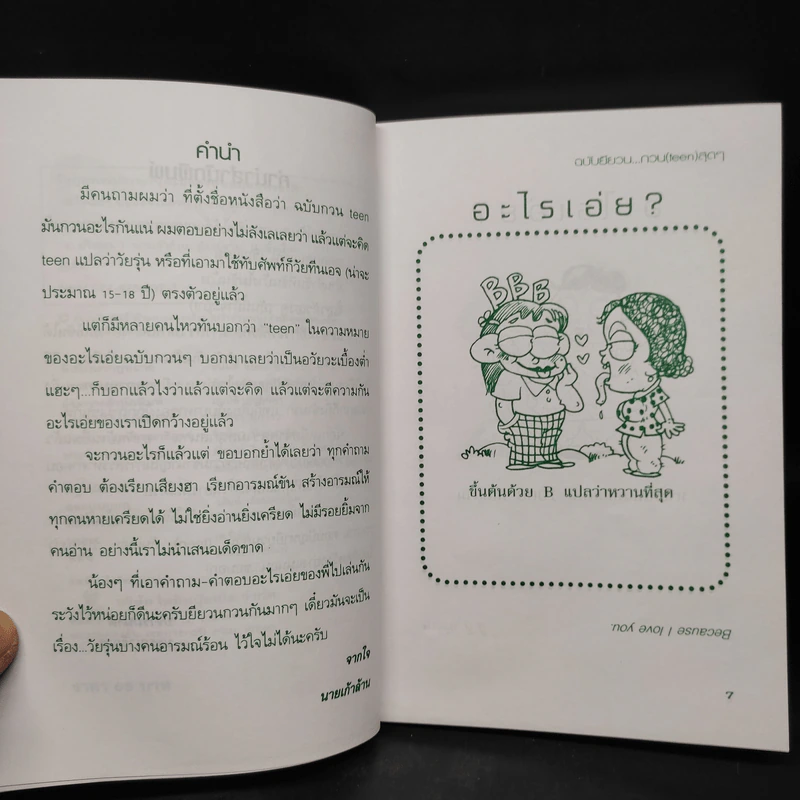 คำนำ
มีคนถามผมว่า ที่ตั้งชื่อหนังสือว่า ฉบับกวน teen
มันกวนอะไรกันแน่ ผมตอบอย่างไม่ลังเลเลยว่า แล้วแต่จะคิด
teen แปลว่าวัยรุ่น หรือที่เอามาใช้ทับศัพท์ก็วัยทีนเอจ (น่าจะ
ประมาณ 15-18 ปี) ตรงตัวอยู่แล้ว
แต่ก็มีหลายคนไหวทันบอกว่า "teen" ในความหมาย
ของอะไรเอ่ยฉบับกวนๆ บอกมาเลยว่าเป็นอวัยวะเบื้องต่ำ
แฮะๆ...ก็บอกแล้วไงว่าแล้วแต่จะคิด แล้วแต่จะตีความกัน
อะไรเอ่ยของเราเปิดกว้างอยู่แล้ว
จะกวนอะไรก็แล้วแต่ ขอบอกย้ำได้เลยว่า ทุกคำถาม
คำตอบ ต้องเรียกเสียงฮา เรียกอารมณ์ขัน สร้างอารมณ์ให้
ทุกคนหายเครียดได้ ไม่ใช่ยิ่งอ่านยิ่งเครียด ไม่มีรอยยิ้มจาก
คนอ่าน อย่างนี้เราไม่นำเสนอเด็ดขาด
น้องๆ ที่เอาคำถาม-คำตอบอะไรเอ่ยของพี่ไปเล่นกัน
ระวังไว้หน่อยก็ดีนะครับยียวนกวนกันมากๆ เดี๋ยวมันจะเป็น
เรื่อง...วัยรุ่นบางคนอารมณ์ร้อน ไว้ใจไม่ได้นะครับ
จากใจ
นายเก้าล้าน
ฉบับยียวน...กวน(teen)สุดๆ
อะไรเอ่ย?
BBB
ขึ้นต้นด้วย B แปลว่าหวานที่สุด
Because I love you.
7